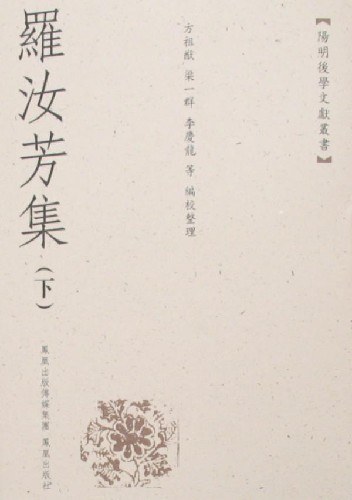 【陽明後學文獻叢書】
方祖猷 梁一群 李慶龍 等 編校整理
羅汝芳集(下)
鳳凰出版傳媒集團 鳳凰出版社